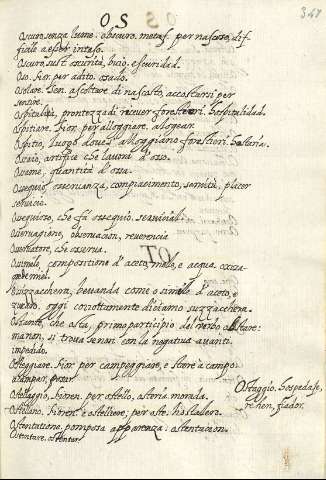 O S
347
Oscuro, senza lume. obscuro. metaf. per nascoso, dif-
ficile a esser inteso.
Oscuro, sust. oscurità, buio, escuridad.
Oso. Fior. per ardito. osado.
Osolare. Sen. ascoltare di nascosto, accostarsi per
sentire.
Ospitalità, prontezza di ricever forestieri. hospitalidad.
Ospitiare. Fior. per alloggiare, alogear.
Ospitio, luogo dove s'alloggiano forestieri. hosteria.
Ossaio, artefice che lavora d'osso.
Ossame, quantità d'ossa.
Ossequio, osservanza, compiacimento, servitù, plazer
servicio.
Ossequioso, che fà ossequio. servicial.
Osservagione, observacion, reverencia
Osservatore, che osserva.
Ossimele, compositione d'aceto, mele, e acqua.
Ossizzacchera, bevanda come o simile d'aceto, e
zucchero. oggi corrottamente diciamo suzzacchera.
Ostante, che osta, primo participio del verbo ostare:
ma non si trova senon con la negativa avanti.
impendo.
Osteggiare. Fior. per campeggiare, e stare à campo.
acampar, poser
Ostellaggio, Fioren. per ostello, osteria. morada.
Ostellano. Fioren. e ostelliere, per oste. hostalero.
Ostentatione. pomposa apparenza. ostentacion.
Ostentare. ostentar.
Ostaggio. hospedaje,
rehen, fiador.